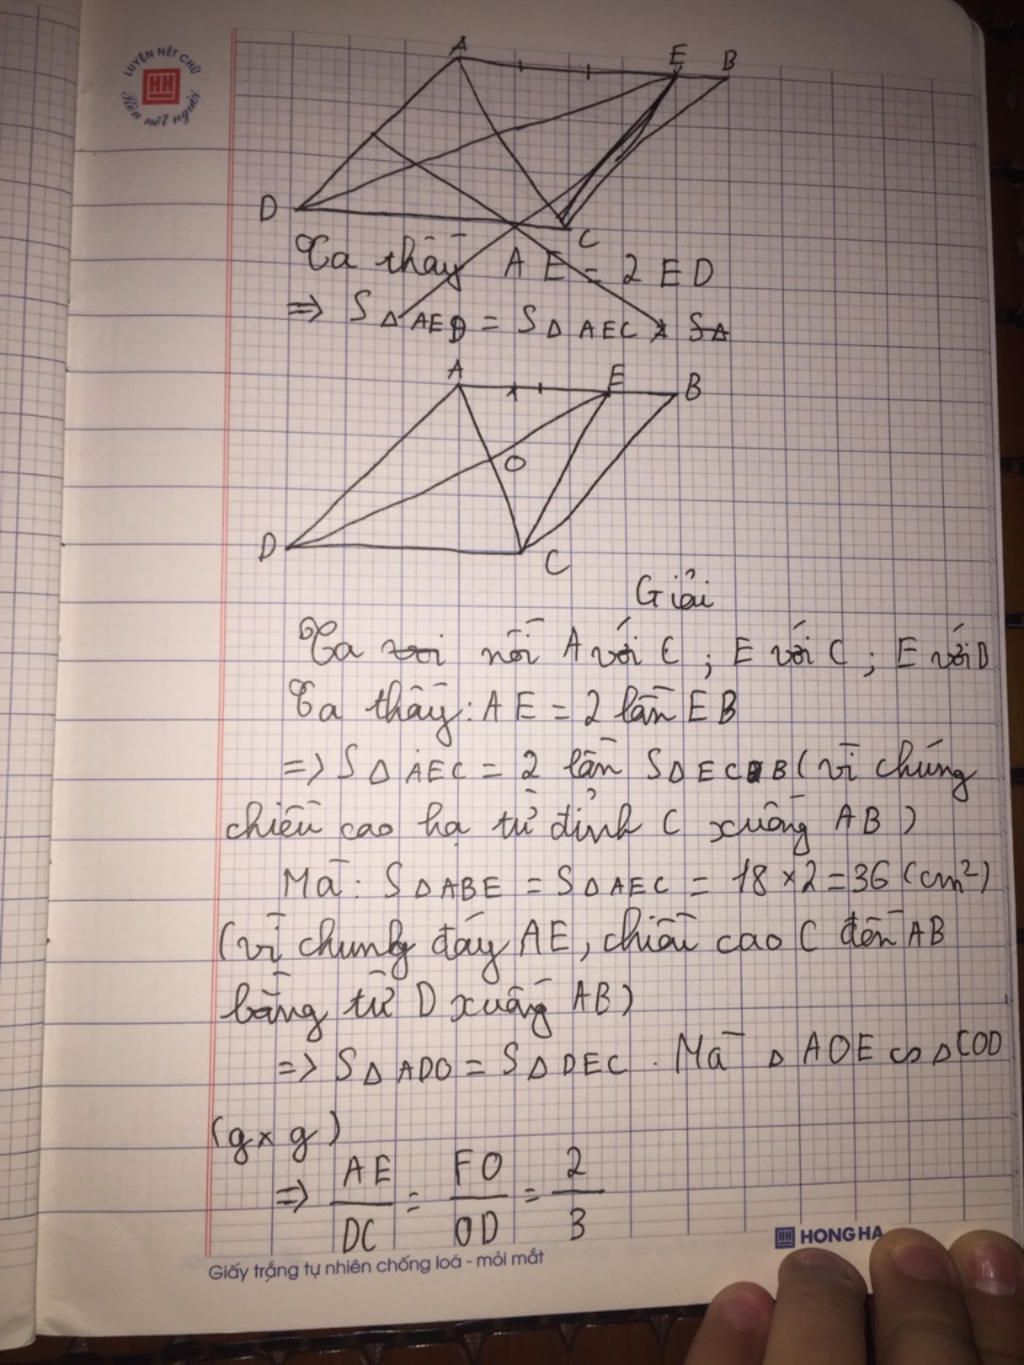 LUYỆN NÉT CHỮ
HH
Rèn nết người
A E B
D C
Ta thấy AE = 2 ED
=> S Δ AED = S Δ AEC x SΔ
A E B
O
D C
Giải
Ta nối A với C ; E với C ; E với D
Ta thấy: AE = 2 lần EB
=> S Δ AEC = 2 lần S Δ ECB (vì chúng
chiều cao hạ từ đỉnh C xuống AB)
Mà: S Δ ABE = S Δ AEC = 18 x 2 = 36 (cm²)
(vì chung đáy AE, chiều cao C đến AB
bằng từ D xuống AB)
=> S Δ ADO = S Δ DEC . Mà Δ AOE ∽ Δ COD
(g x g)
=> AE/DC = FO/OD = 2/3
HONG HA
Giấy trắng tự nhiên chống loá - mỏi mắt